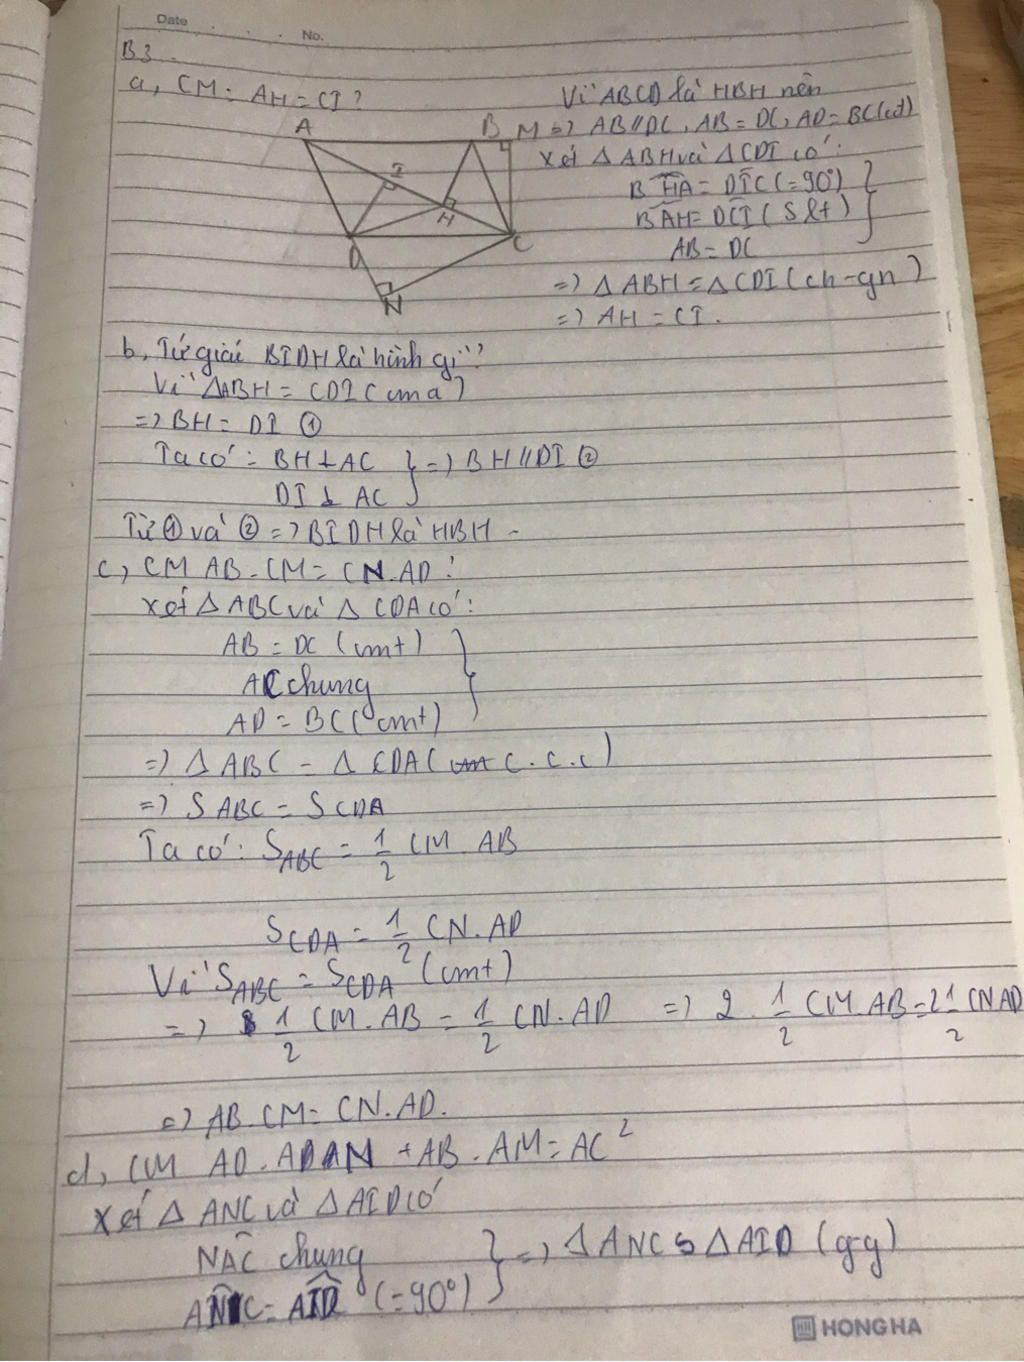 Date
No.
B3.
a, CM: AH = CI?
A
B
M
I
H
D
C
N
Vì ABCD là HBH nên
=> AB // DC, AB = DC, AD = BC (cđ)
Xét Δ ABH và Δ CDI có:
BHA = DIC (= 90°)
BAH = DCI (slt)
AB = DC
=> Δ ABH = Δ CDI (ch-gn)
=> AH = CI.
b, Tứ giác BIDH là hình gì?
Vì ΔABH = CDI (cma)
=> BH = DI ①
Ta có: BH ⊥ AC } => BH // DI ②
DI ⊥ AC
Từ ① và ② => BIDH là HBH -
c, CM AB.CM = CN.AD:
Xét Δ ABC và Δ CDA có:
AB = DC (cmt)
AC chung
AD = BC (cmt)
=> Δ ABC = Δ CDA (c.c.c)
=> S ABC = S CDA
Ta có: S ABC = 1/2 CM. AB
S CDA = 1/2 CN. AD
Vì S ABC = S CDA (cmt)
=> 1/2 CM. AB = 1/2 CN. AD => 2. 1/2 CM. AB = 2 1/2 CN AD
=> AB. CM = CN. AD.
d, CM AD. AN + AB. AM = AC²
Xét Δ ANC và Δ AID có
NAC chung } => Δ ANC ᔕ Δ AID (g-g)
ANC = AID (= 90°)
HONG HA